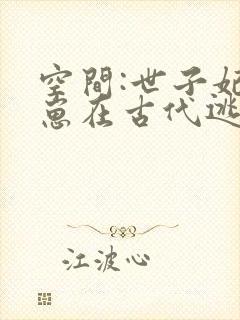 空間:世子妃
崽在古代逃
江波心